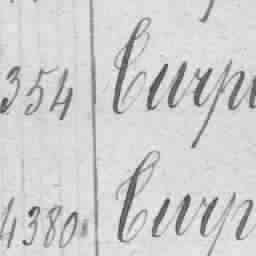 354 Curp
4380 Curp